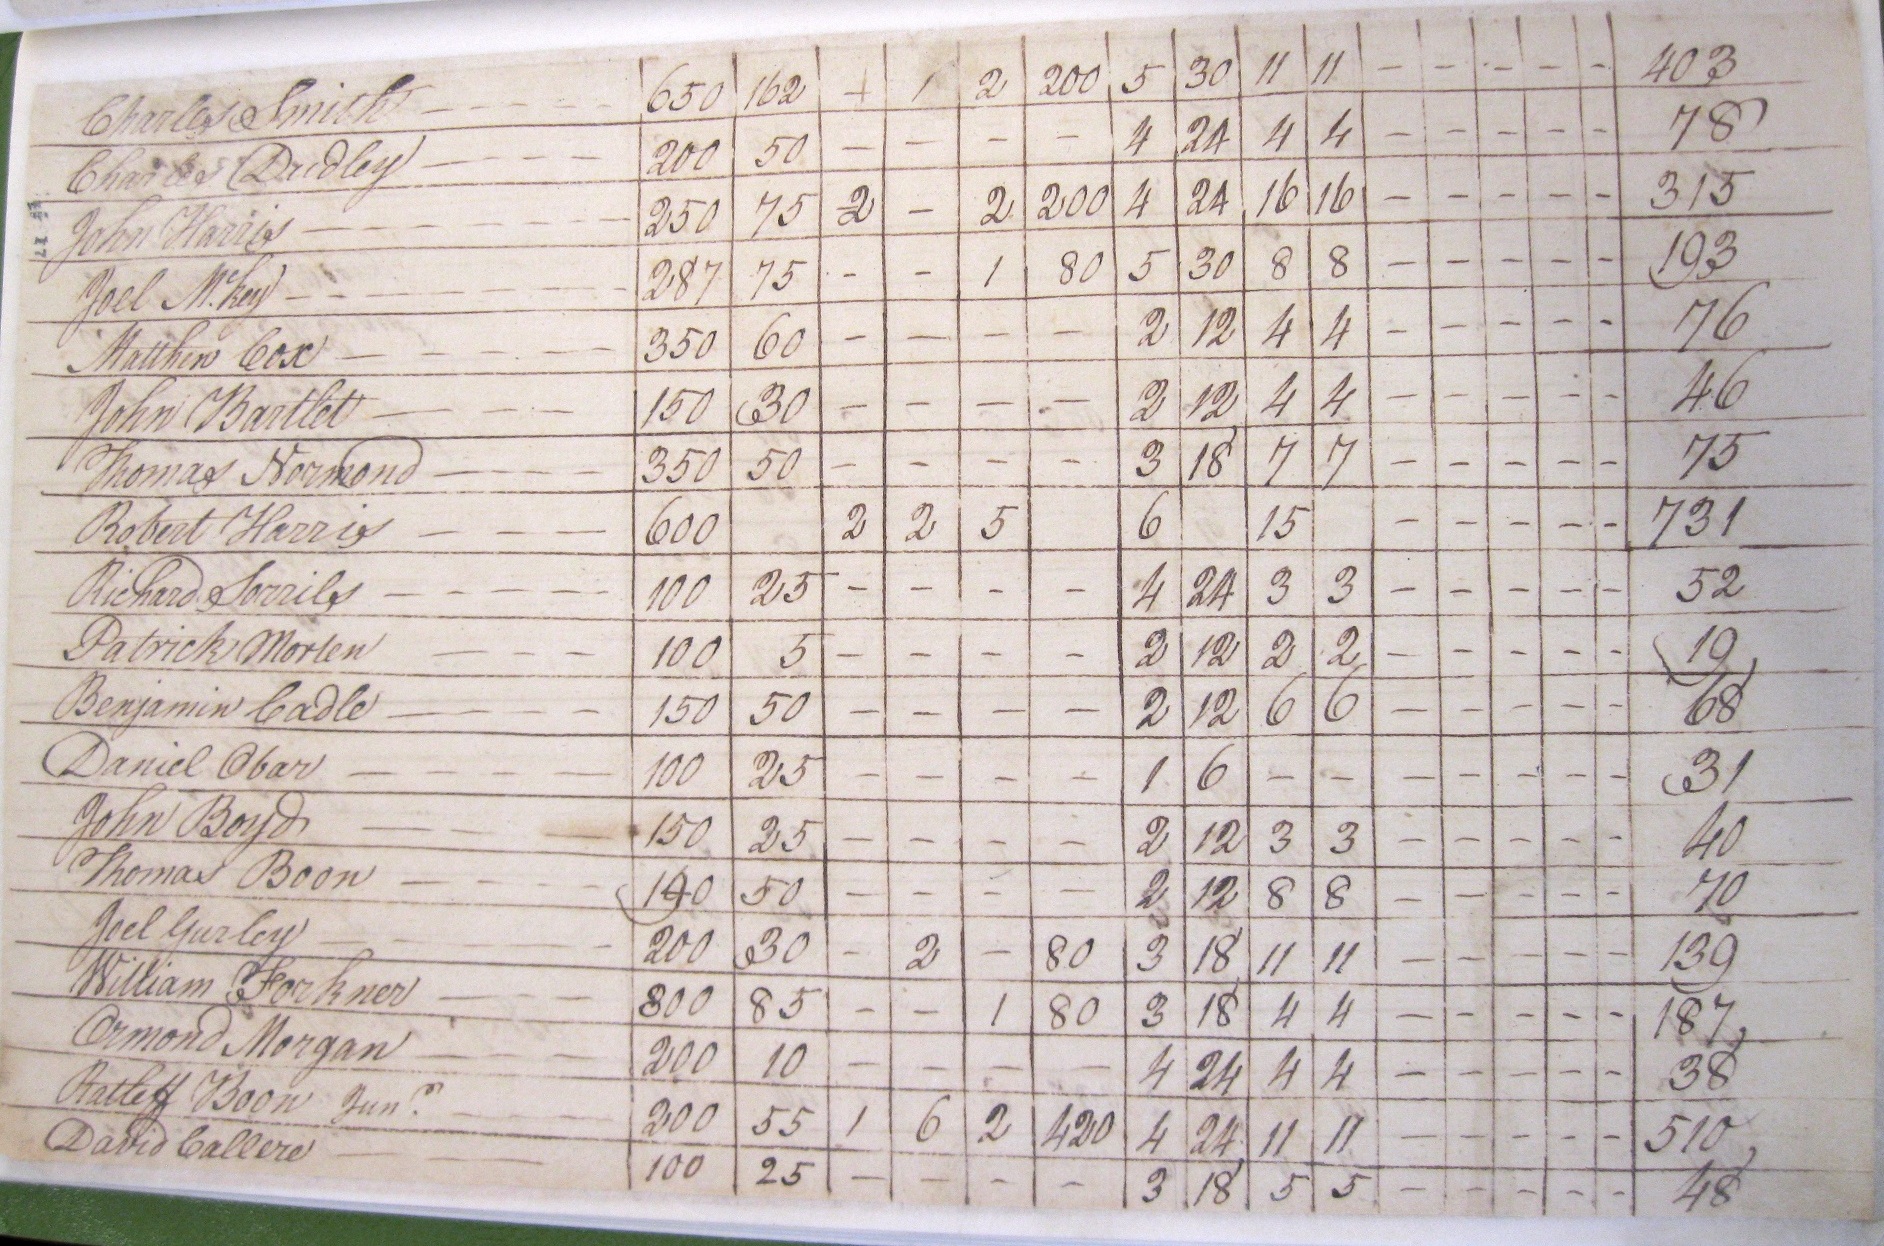 Charles Smith - - - - - 650 162 + 1 2 200 5 30 11 11 - - - - - 403
Charles Dudley - - - - - 200 50 - - - - 4 24 4 4 - - - - - 78
John Harris - - - - - - - 250 75 2 - 2 200 4 24 16 16 - - - - - 315
Joel McKey - - - - - - - 287 75 - - 1 80 5 30 8 8 - - - - - 193
Matthew Cox - - - - - 350 60 - - - - 2 12 4 4 - - - - - 76
John Bartlet - - - - 150 30 - - - - 2 12 4 4 - - - - - 46
Thomas Normond - - - - 350 50 - - - - 3 18 7 7 - - - - - 75
Robert Harris - - - - 600 2 2 5 6 15 - - - - - 731
Richard Sorrils - - - - - 100 25 - - - - 4 24 3 3 - - - - - 52
Patrick Morten - - - - 100 5 - - - - 2 12 2 2 - - - - - 19
Benjamin Cadle - - - - - 150 50 - - - - 2 12 6 6 - - - - - 68
Daniel Obar - - - - - - 100 25 - - - - 1 6 - - - - - - - 31
John Boyd - - - - 150 25 - - - - 2 12 3 3 - - - - - 40
Thomas Boon - - - - - 140 50 - - - - 2 12 8 8 - - - - - 70
Joel Gurley - - - - - 200 30 - 2 - 80 3 18 11 11 - - - - - 139
William Forkner - - - - 300 85 - - 1 80 3 18 4 4 - - - - - 187
Ormond Morgan - - - - 200 10 - - - - 4 24 4 4 - - - - - 38
Ratleff Boon Junr. - - - - 200 55 1 6 2 420 4 24 11 11 - - - - - 510
David Callere - - - - 100 25 - - - - 3 18 5 5 - - - - - 48